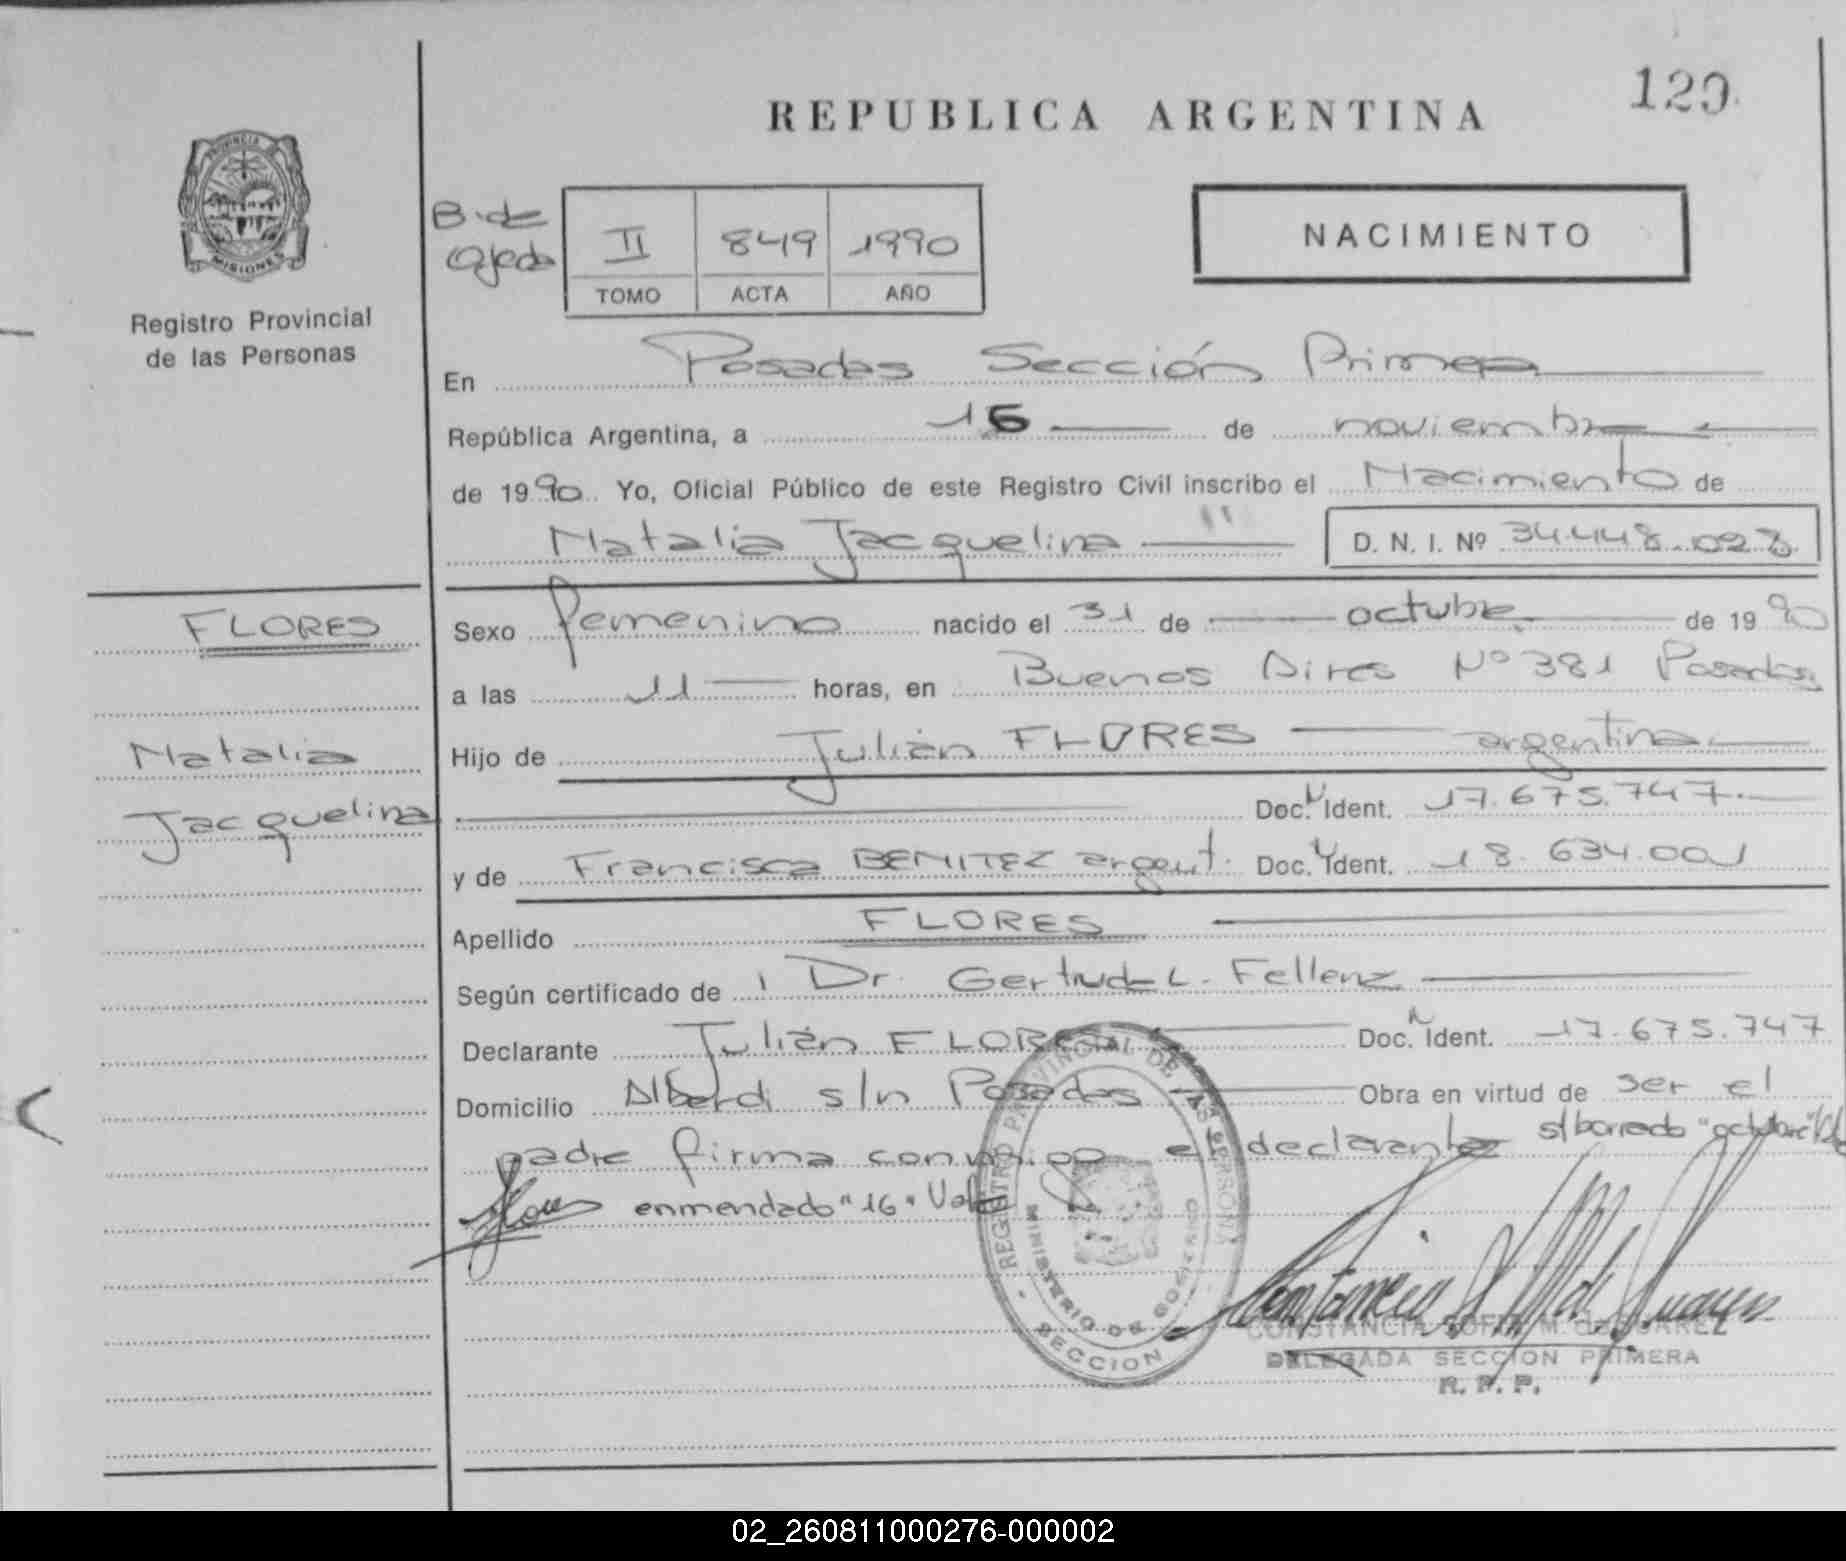 129
REPUBLICA ARGENTINA
PROVINCIA DE
MISIONES
Registro Provincial
de las Personas
B. de
Ojeda
II 849 1990
TOMO ACTA AÑO
NACIMIENTO
En Posadas Sección Primera
República Argentina, a 16 de noviembre
de 1990 Yo, Oficial Público de este Registro Civil inscribo el Nacimiento de
Natalia Jacquelina D. N. I. Nº 34.448.023
FLORES
Natalia
Jacquelina
Sexo femenino nacido el 31 de octubre de 1990
a las 11 horas, en Buenos Aires Nº 381 Posadas
Hijo de Julián FLORES argentina
Doc. Ident. 17.675.747.
y de Francisca BENITEZ argent. Doc. Ident. 18.634.001
Apellido FLORES
Según certificado de Dr. Gertrudes L. Fellenz
Declarante Julián FLORES Doc. Ident. 17.675.747
Domicilio Alberdi s/n Posadas Obra en virtud de ser el
padre firma conmigo el declarante s/borrado "octubre"
Flores enmendado "16" Vale
REGISTRO PROVINCIAL DE LAS PERSONAS
MINISTERIO DE GOBIERNO
SECCION
CONSTANCIA SOFIA M. DE SUAREZ
DELEGADA SECCION PRIMERA
R. P. P.
02_260811000276-000002